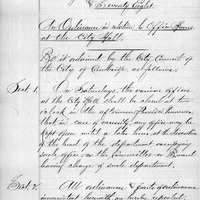 & Seventy Eight
An Ordinance in relation to Office Hours
at the City Hall.
Be it ordained by the City Council of
the City of Cambridge, as follows.
Sect. 1. On Saturdays the various offices
at the City Hall shall be closed at two
o'clock in the afternoon, Provided, however,
that in case of necessity, any office may be
kept open until a late hour at the discretion
of the head of the department occupying
such office, or the Committee or Board
having charge of such department.
Sect. 2. All ordinances & parts of ordinances
inconsistent herewith are hereby repealed.